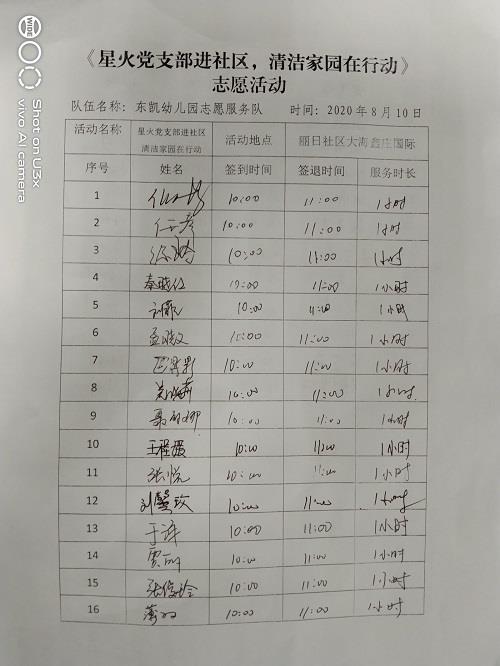 《星火党支部进社区，清洁家园在行动》
志愿活动
队伍名称：东凯幼儿园志愿服务队 时间：2020年8月10日
活动名称 星火党支部进社区 清洁家园在行动 活动地点 丽日社区大海鑫庄国际
序号 姓名 签到时间 签退时间 服务时长
1 10:00 11:00 1小时
2 10:00 11:00 1小时
3 10:00 11:00 1小时
4 10:00 11:00 1小时
5 10:00 11:00 1小时
6 10:00 11:00 1小时
7 10:00 11:00 1小时
8 10:00 11:00 1小时
9 10:00 11:00 1小时
10 王程媛 10:00 11:00 1小时
11 张悦 10:00 11:00 1小时
12 10:00 11:00 1小时
13 10:00 11:00 1小时
14 贾丽 10:00 11:00 1小时
15 张俊玲 10:00 11:00 1小时
16 10:00 11:00 1小时
Shot on U3x
vivo AI camera